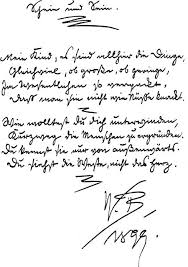 Schein und Sein.
Mein Kind, es sind allhier die Dinge,
Gleichviel, ob große, ob geringe,
Im Wesentlichen so verpackt,
Daß man sie nicht wie Nüsse knackt.
Wie wolltest Du Dich unterwinden,
Kurzweg die Menschen zu ergründen.
Du kennst sie nur von außenwärts.
Du siehst die Weste, nicht das Herz.
W. B.
1899.